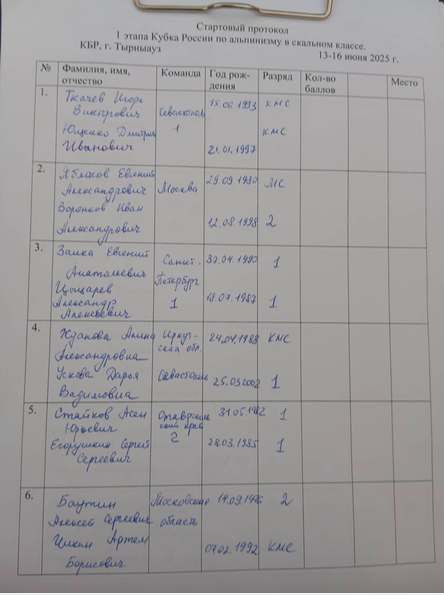 Стартовый протокол
1 этапа Кубка России по альпинизму в скальном классе.
КБР, г. Тырныауз
13-16 июня 2025 г.
№ Фамилия, имя, отчество Команда Год рождения Разряд Кол-во баллов Место
1. Ткачев Игорь 15.06.1993 КМС
Викторович
1
Ющенко Дмитрий КМС
Иванович 21.01.1997
2. Евгений 29.09.1980 МС
Александрович Москва
Воронков Иван
Александрович 12.08.1998 2
3. Заика Евгений Санкт- 1
Анатольевич Петербург
Александр 1 1
Алексеевич
4. Иркут- 24.04.1988 КМС
Александровна ская обл.
Ускова Дарья Севастополь 25.03.2002 1
Вадимовна
5. 31.05 1
Юрьевич край
Егорушкин Сергей 2 28.03.1985 1
Сергеевич
6. Баутин Московская 2
Алексей Сергеевич область
Артем 07.02.1992 КМС
Борисович